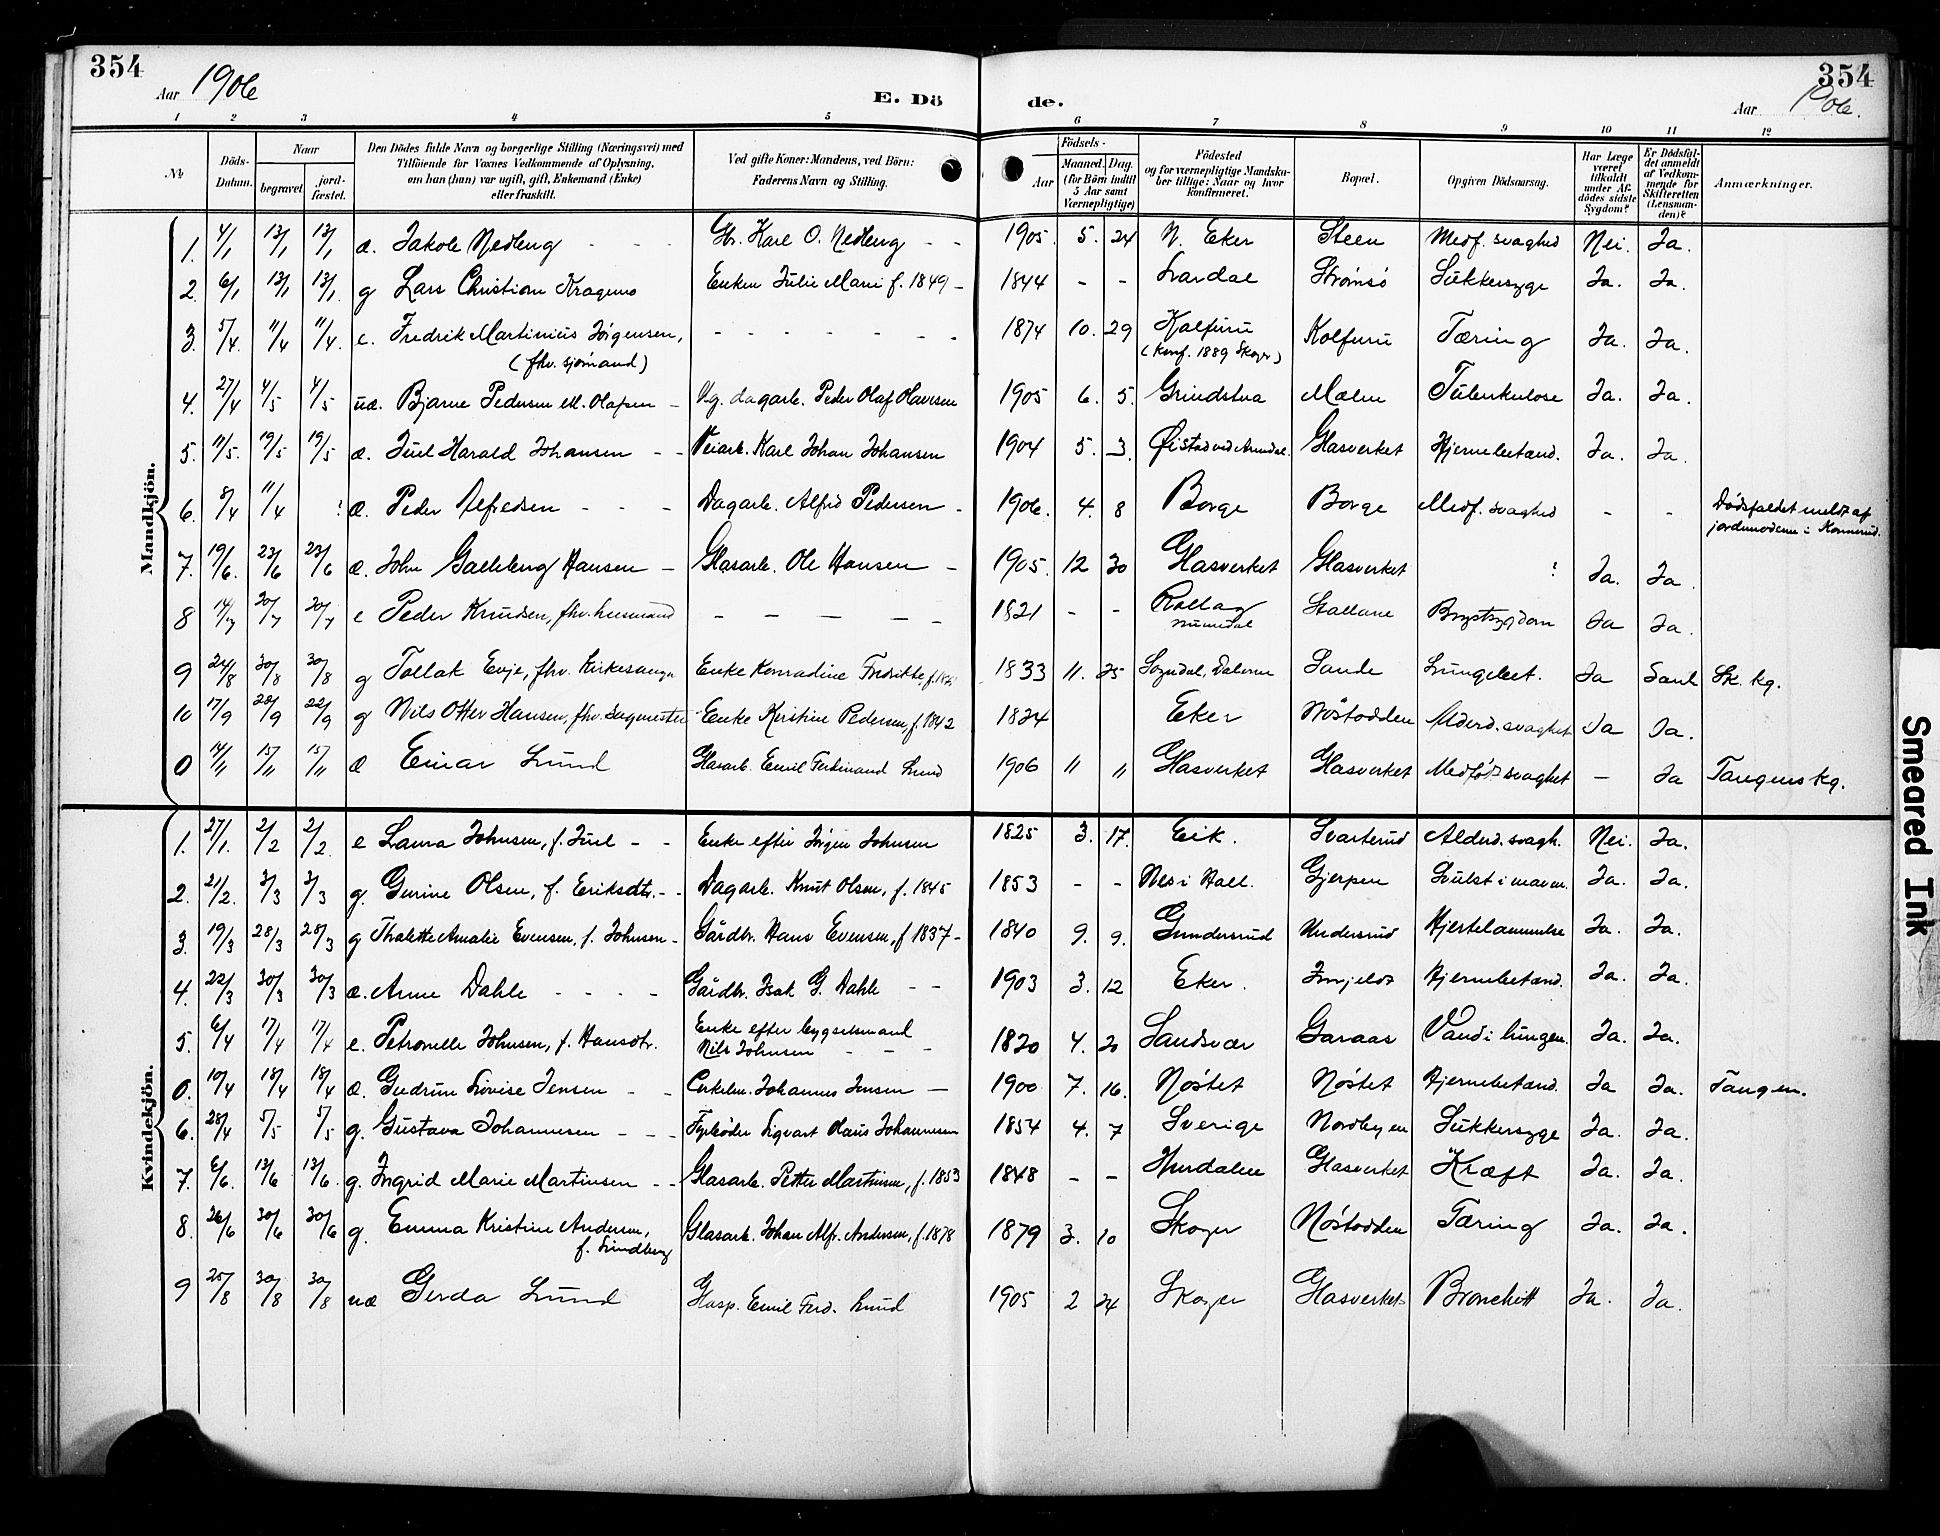 354
Aar 1906
E. Dö
de.
354
Aar
1 2 3 4 5 6 7 8 9 10 11 12
№
Döds-Datum.
Naar
begravet.
jord-fæstet.
Den Dödes fulde Navn og borgerlige Stilling (Næringsvei) med
Tilföiende for Voxnes Vedkommende af Oplysning,
om han (hun) var ugift, gift, Enkemand (Enke)
eller fraskilt.
Ved gifte Koner: Mandens, ved Börn:
Faderens Navn og Stilling.
Födsels-
Aar
Maaned. Dag.
(for Börn indtil
5 Aar samt
Værnepligtige)
Födested
og for værnepligtige Mandska-
ber tillige: Naar og hvor
konfirmeret.
Bopæl.
Opgiven Dödsaarsag.
Har Læge
været
tilkaldt
under Af-
dödes sidste
Sygdom?
Er Dödsfal-
det anmeldt
af Vedkom-
mende for
Skifteretten
(Lensman-
den)?
Anmærkninger.
Mandkjön.
1. 4/1 13/1 13/1 æ. Jakob Nedberg - - - Gbr. Karl O. Nedberg - - 1905. 5. 24 N. Eker Steen Medf. svaghed Nei. Ja.
2. 6/1 13/1 13/1. g Lars Christian Kragenes Enken Julie Marie f. 1849 - 1844 - - Svardal Strømsø Sukkersyge Ja. Ja.
3. 5/4 11/4 11/4. e. Fredrik Martinius Jørgensen, - - - - - - 1874 10. 29 Kolfuru Kolfuru Tæring Ja. Ja.
(fhv. sjømand) (Konf. 1889 Skoger)
4. 27/4 4/5 4/5 uæ. Bjarne Pedersen el. Olafsen - Ug. dagarb. Peder Olaf Olavesen 1905 6. 5. Grindstua Mælen Tuberkulose Ja. Ja.
5. 11/5. 19/5 19/5 æ. Juel Harald Johansen - - Veiarb. Karl Johan Johansen 1904 5. 3. Øistad ved Arendal. Glasverket Hjernebetænd. Ja. Ja.
6. 8/4 11/4 ! æ. Peder Alfredsen - - - Dagarb. Alfred Pedersen - 1906. 4. 8 Borge Borge Medf. svaghed - - Dødsfaldet meldt af
jordmoderen i Konnerud.
7. 19/6. 23/6 23/6 æ. John Galleberg Hansen - Glasarb. Ole Hansen - 1905. 12 30 Glasverket Glasverket ! Ja. Ja.
8 14/7 20/7 20/7 e Peder Knudsen, fhv. husmand - - - - - 1821 - - Rollag Stallane Brystsygdom Ja Ja.
Numedal
9 24/8 30/8 30/8 g Tollak Evje, fhv. kirkesanger Enke Konradine Fredrikke 1833 11. 25 Sogndal, Dalerne Sande Lungebet. Ja Sk. kg.
10 17/9 28/9 22/9 g Nils Otter Hansen, fhv. sagmester Enke Kirstine Pedersen, f. 1842 1824 Eker Nøstodden Alderd. svaghet Ja Ja.
0 14/11 15/11 15/11 æ Einar Lund Glasarb. Emil Ferdinand Lund 1906 11 11 Glasverket Glasverket Medfødt svaghet - Ja Tangens kg.
Kvindekjön.
1. 27/1. 2/2 2/2. e Laura Johnsen, f. Juel - - Enke efter Jörgen Johnsen 1825 3. 17. Eik. Svarterud Alderd. svagh. Nei. Ja.
2. 21/2. 3/3 3/3 g. Gurine Olsen, f. Eriksdtr. - - Dagarb. Knut Olsen, f. 1845 1853 - - Nes i Hall. Gjerpen Svulst i maven. Ja. Ja.
3. 19/3 28/3 28/3 g Thalette Amalie Evensen, f. Johnsen - Gårdbr. Hans Evensen, f 1837 - 1840 9. 9. Gundersrud Undersrud Hjertelammelse Ja. Ja.
4. 22/3 30/3 30/3 æ. Anne Dahle - - - - Gårdbr. Isak G. Dahle - - 1903 3. 12 Eker. Imjeldt Hjernebetænd. Ja. Ja.
5. 6/4 17/4 17/4 e. Petronelle Johnsen, f. Hansdtr. Enke efter bygselmand
Nils Johnsen - - - 1820 4. 20 Sandsvær Garaas Vand i lungen. Ja. Ja.
0. 10/4 18/4 18/4 æ. Gudrun Lovise Jensen - - Johannes Jensen - 1900 7. 16. Nøstet Nøstet Hjernebetænd. Ja Ja. Tangen.
6. 28/4 5/5 5/5 g. Gustava Johannesen - - - Fyrbøder Sigvart Klaus Johannesen 1854 4. 7 Sverige Nordbyen Sukkersyge Ja. Ja.
7. 6/6. 13/6 13/6. g. Ingrid Marie Martinsen - - Glasarb. Petter Martinsen, f. 1853 1848 - - Hurdalen Glasverket Kræft Ja. Ja.
8. 26/6 30/6 30/6 g. Emma Kristine Andersen, Glasarb. Johan Alfr. Andersen, f. 1878 1879 3. 10 Skoger Nøstodden Tæring Ja. Ja.
f. Lundberg
9 25/8 30/8 30/8 uæ Gerda Lund Glasp. Emil Ferd. Lund 1905 2 24 Skoger Glasverket Bronchitt Ja. Ja.
Smeared Ink